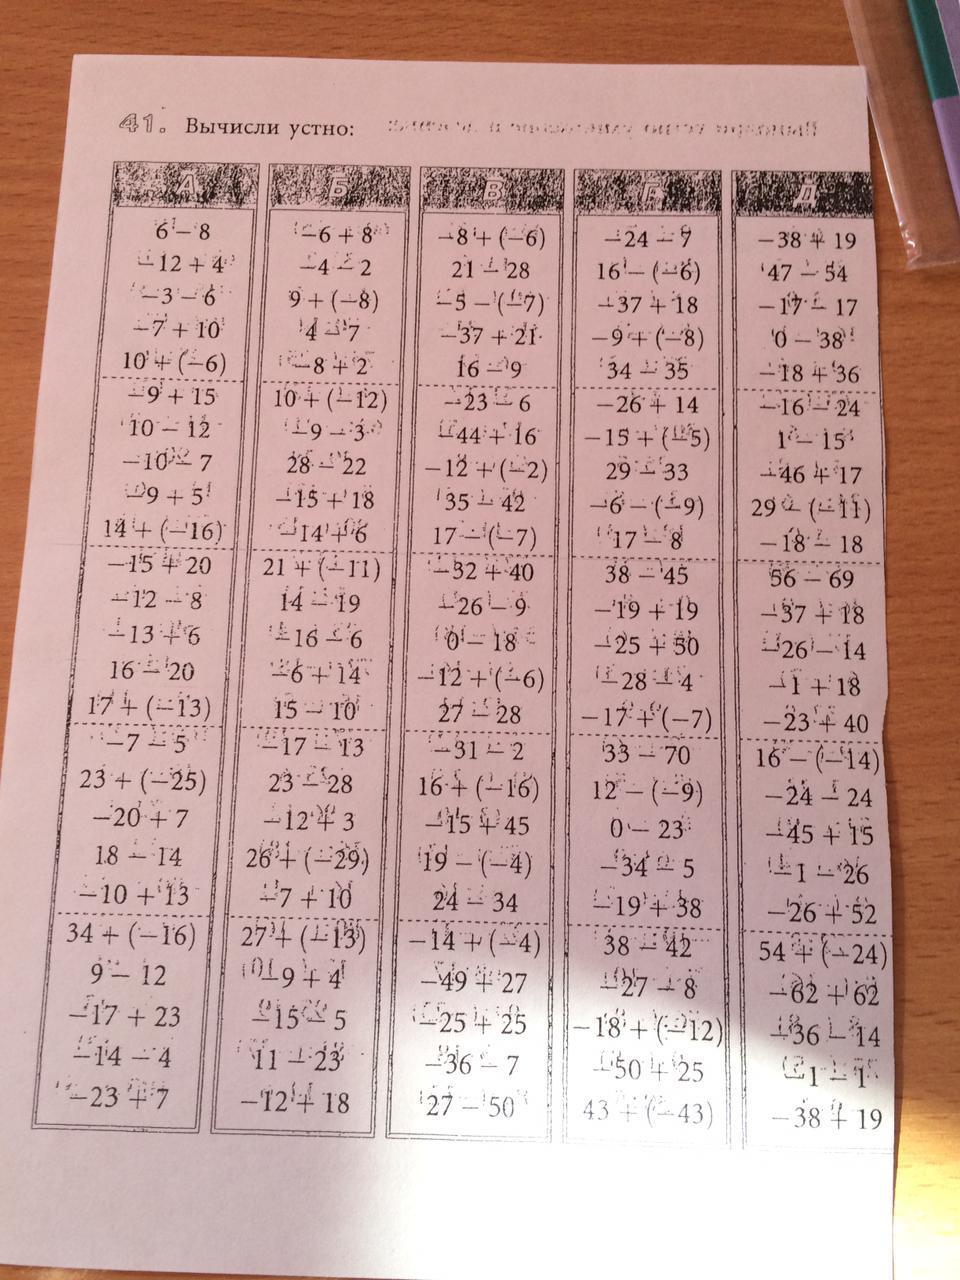 41. Вычисли устно:
А Б В Г Д
6 − 8 −6 + 8 −8 + (−6) −24 − 9 −38 + 19
−12 + 4 −4 − 2 21 − 28 16 − (−6) 47 − 54
−3 − 6 9 + (−8) −5 − (−7) −37 + 18 −17 − 17
−7 + 10 4 − 7 −37 + 21 −9 + (−8) 0 − 38
10 + (−6) −8 + 2 16 − 9 34 − 35 −18 + 36
−9 + 15 10 + (−12) −23 − 6 −26 + 14 −16 − 24
10 − 12 −9 − 3 −44 + 16 −15 + (−5) 1 − 15
−10 − 7 28 − 22 −12 + (−2) 29 − 33 −46 + 17
−9 + 5 −15 + 18 35 − 42 −6 − (−9) 29 − (−11)
14 + (−16) −14 + 6 17 − (−7) 17 − 8 −18 − 18
−15 + 20 21 + (−11) −32 + 40 38 − 45 56 − 69
−12 − 8 14 − 19 −26 − 9 −19 + 19 −37 + 18
−13 + 6 −16 − 6 0 − 18 −25 + 50 −26 − 14
16 − 20 −6 + 14 −12 + (−6) −28 − 4 −1 + 18
17 + (−13) 15 − 10 27 − 28 −17 + (−7) −23 + 40
−7 − 5 −17 − 13 −31 − 2 33 − 70 16 − (−14)
23 + (−25) 23 − 28 16 + (−16) 12 − (−9) −24 − 24
−20 + 7 −12 + 3 −15 + 45 0 − 23 −45 + 15
18 − 14 26 + (−29) 19 − (−4) −34 − 5 −1 − 26
−10 + 13 −7 + 10 24 − 34 −19 + 38 −26 + 52
34 + (−16) 27 + (−13) −14 + (−4) 38 − 42 54 + (−24)
9 − 12 −9 + 4 −49 + 27 −27 − 8 −62 + 62
−17 + 23 −15 − 5 −25 + 25 −18 + (−12) −36 − 14
−14 − 4 11 − 23 −36 − 7 −50 + 25 −1 − 1
−23 + 7 −12 + 18 27 − 50 43 + (−43) −38 + 19